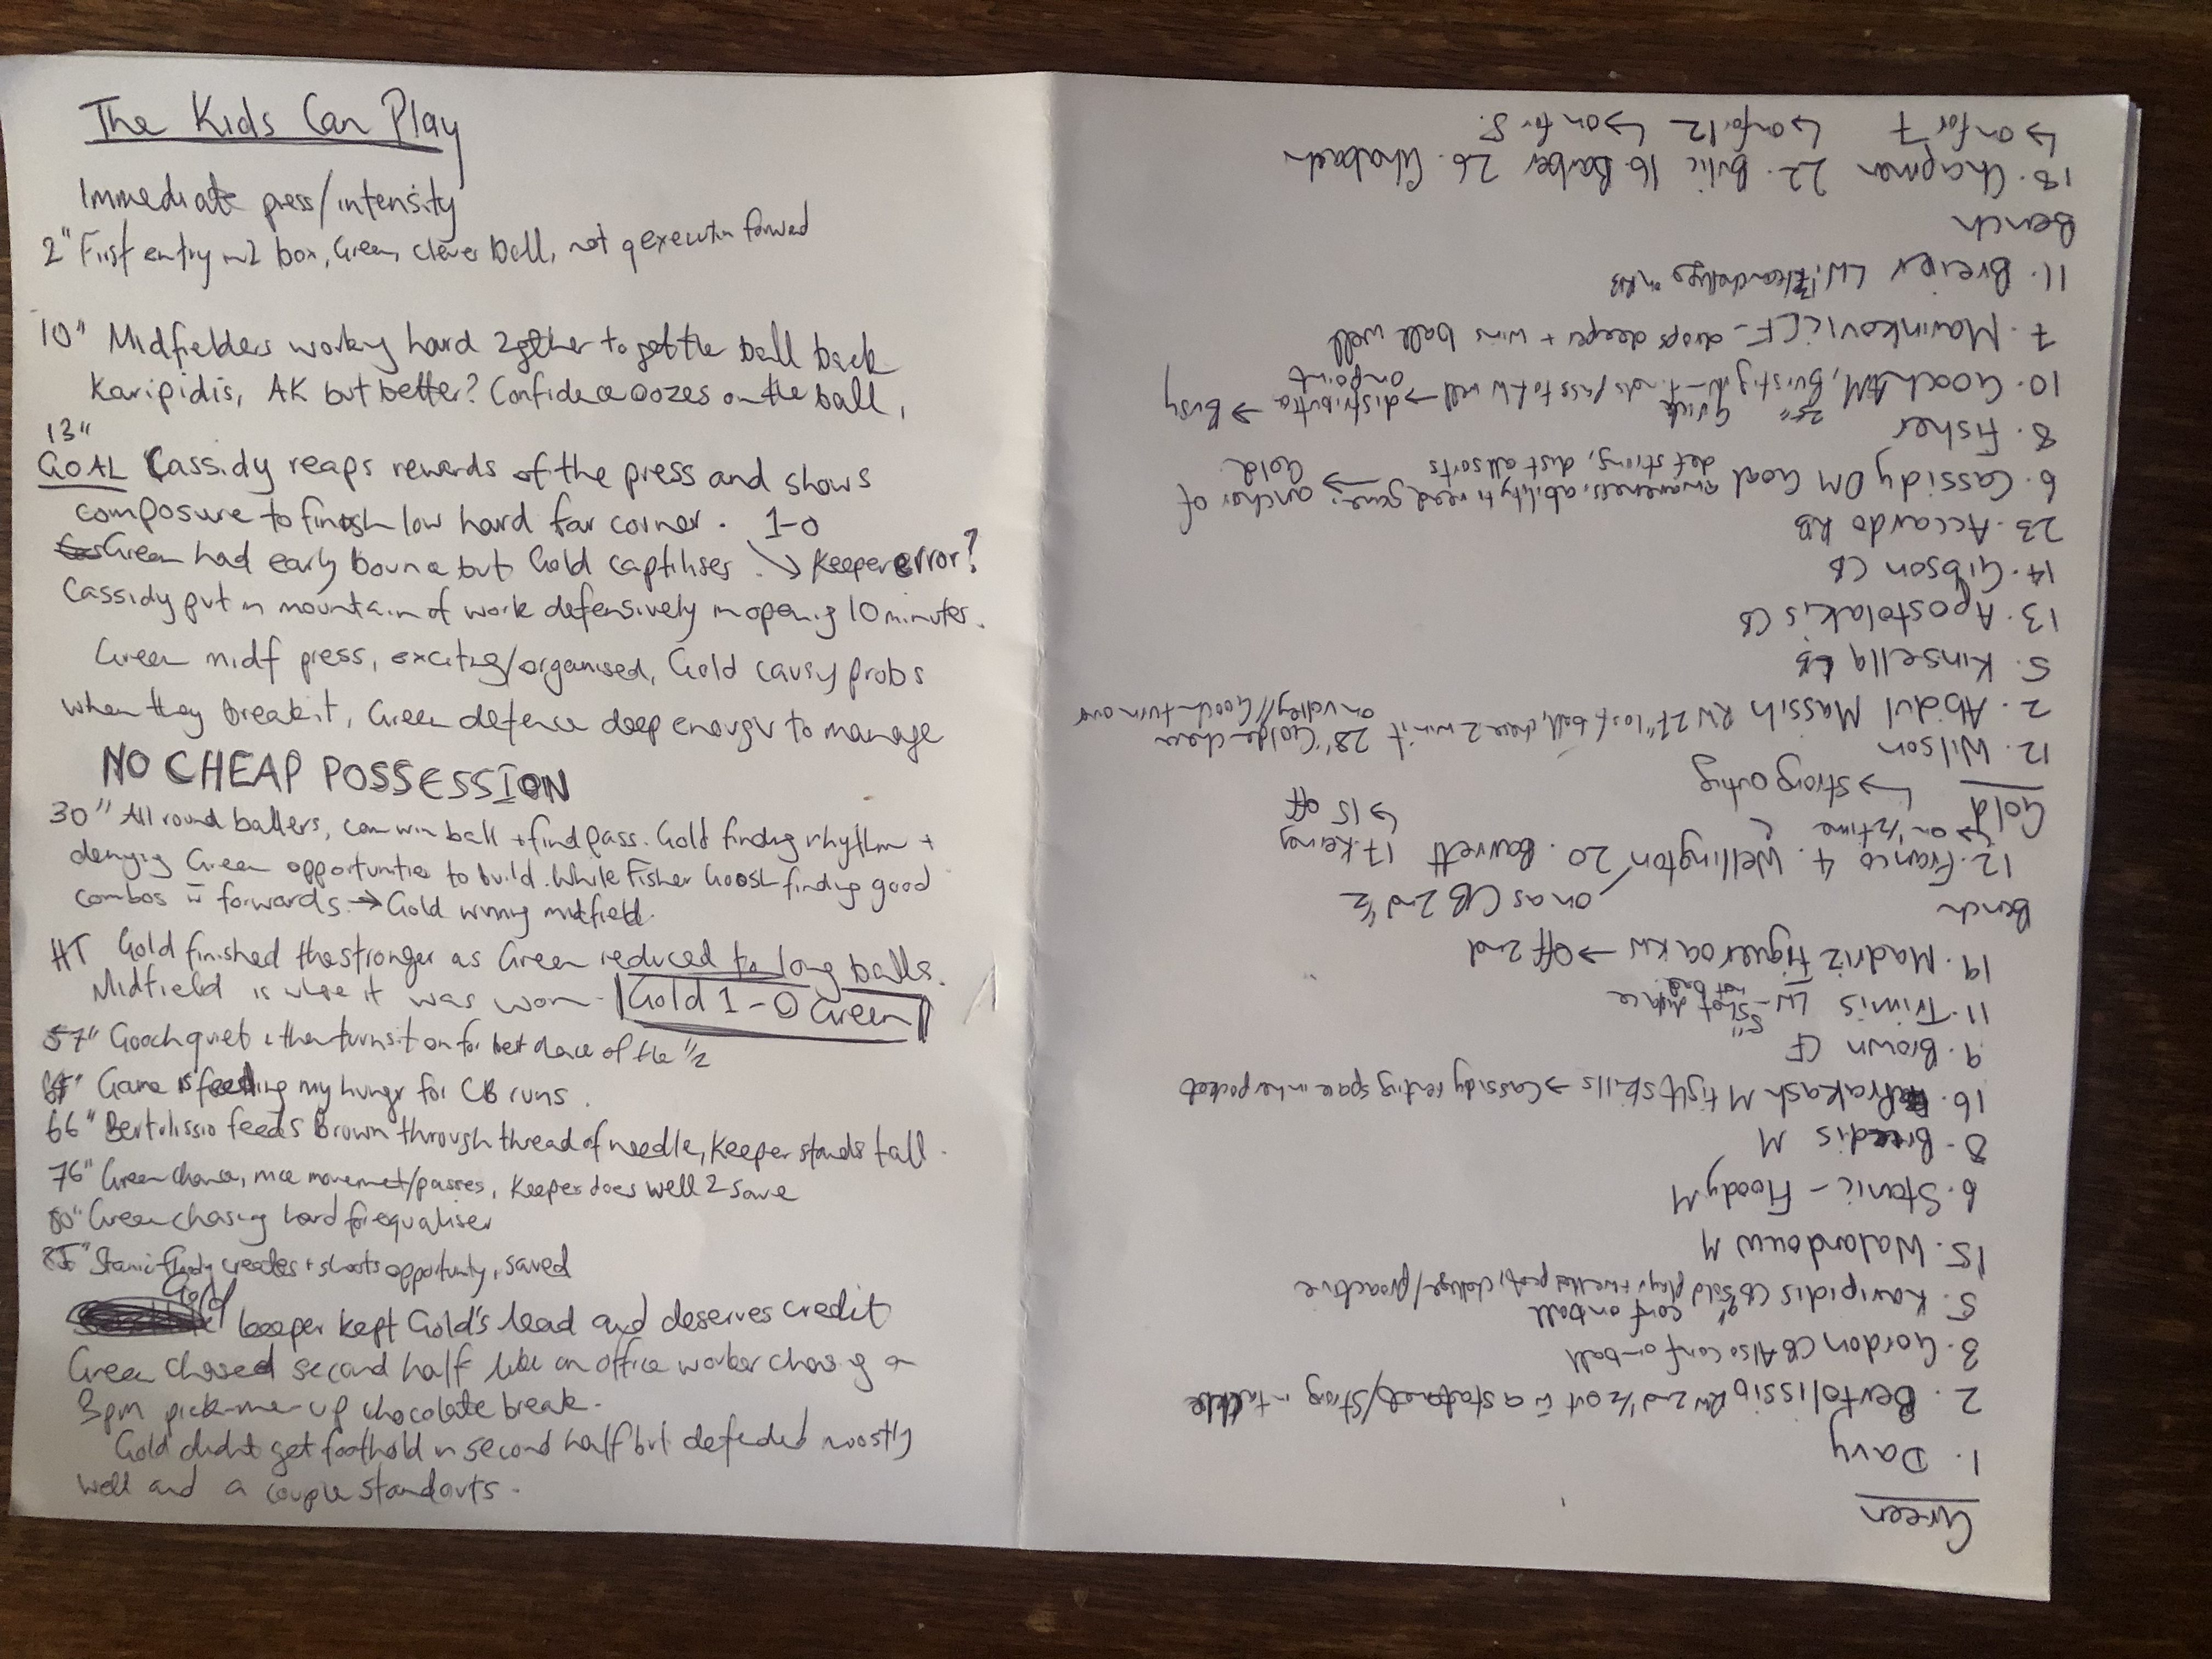 The Kids Can Play
Immediate press/intensity
2" First entry in2 box, Green, clever ball, not executin forward
10" Midfielders workg hard 2gther to get the ball back
Karipidis, AK but better? Confidence oozes on the ball,
13"
GOAL Cassidy reaps rewards of the press and shows
composure to finish low hard far corner. 1-0
Green had early boune but Gold captilises. ↘ Keeper error?
Cassidy put in mountain of work defensively in openig 10 minutes.
Green midf press, exciting/organised, Gold causig probs
when they break it, Green defence deep enough to manage
NO CHEAP POSSESSION
30" All round ballers, can win ball + find pass. Gold findig rhythm +
denyig Green opportunities to build. While Fisher Goosh findig good
combos w forwards → Gold winnig midfield.
HT Gold finished the stronger as Green reduced to long balls.
Midfield is where it was won. Gold 1-0 Green
57" Gooch quiet & then turns it on for best of the 1/2
Game is feeding my hungr for CB runs.
66" Bertolissio feeds Brown through thread of needle, Keeper stands tall.
76" Green chance, nice movement/passes, Keeper does well 2 save
80" Green chasing hard for equaliser
85" Stanic-Floody creates + shoots opportunity, saved
Gold
keeper kept Gold's lead and deserves credit
Green chased second half like an office worker chasig a
3pm pick-me-up chocolate break.
Gold didnt get foothold in second half but defended mostly
well and a couple standouts.
Green
1. Davy
2. Bertolissio RW 2nd 1/2 out w a statement/Strong in tackle
3. Gordon CB Also conf on ball
conf on ball
5. Karipidis CB Solid challenge/proactive
15. Walandouw M
6. Stanic-Floody M
8. Breedis M
16. Prakash M tight skills → Cassidy renting space in her pocket
9. Brown CF
11. Trimis LW - 5" Shot distance
not bad
19. Madriz Figueroa RW → Off 2nd
Bench on as CB 2nd 1/2
12. Franco 4. Wellington 20. Barrett 17. Kearney
↳ on 1/2 time ↳ 15 off
Gold ↳ Strong outing
12. Wilson
28" Golden chance
2. Abdul Massih RW 27" lost ball, chase 2 win it on volley//Gooch turn over
5. Kinsella LB
13. Apostolakis CB
14. Gibson CB
23. Accardo RB
6. Cassidy DM Goal awareness, ability to read game; anchor of
def strong, dist all sorts → Gold
8. Fisher
10. Gooch AM, Bursting finds pass to LW well → distribution → Busy
on point
7. Marinkovic CF - drops deeper + wins ball well
11. Breier LW
Bench
18. Chapman 22. Bilic 16. Barber 26. Ghabach
↳ on for 7 ↳ on for 12 ↳ on for 8.